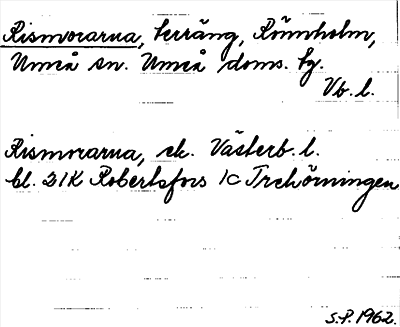 Rismorarna, terräng, Rönnholm,
Umeå sn. Umeå doms. tg.
Vb. l.
Rismorarna, ek. Västerb. l.
bl. 21K Robertsfors 1c Trehörningen
S.P. 1962.